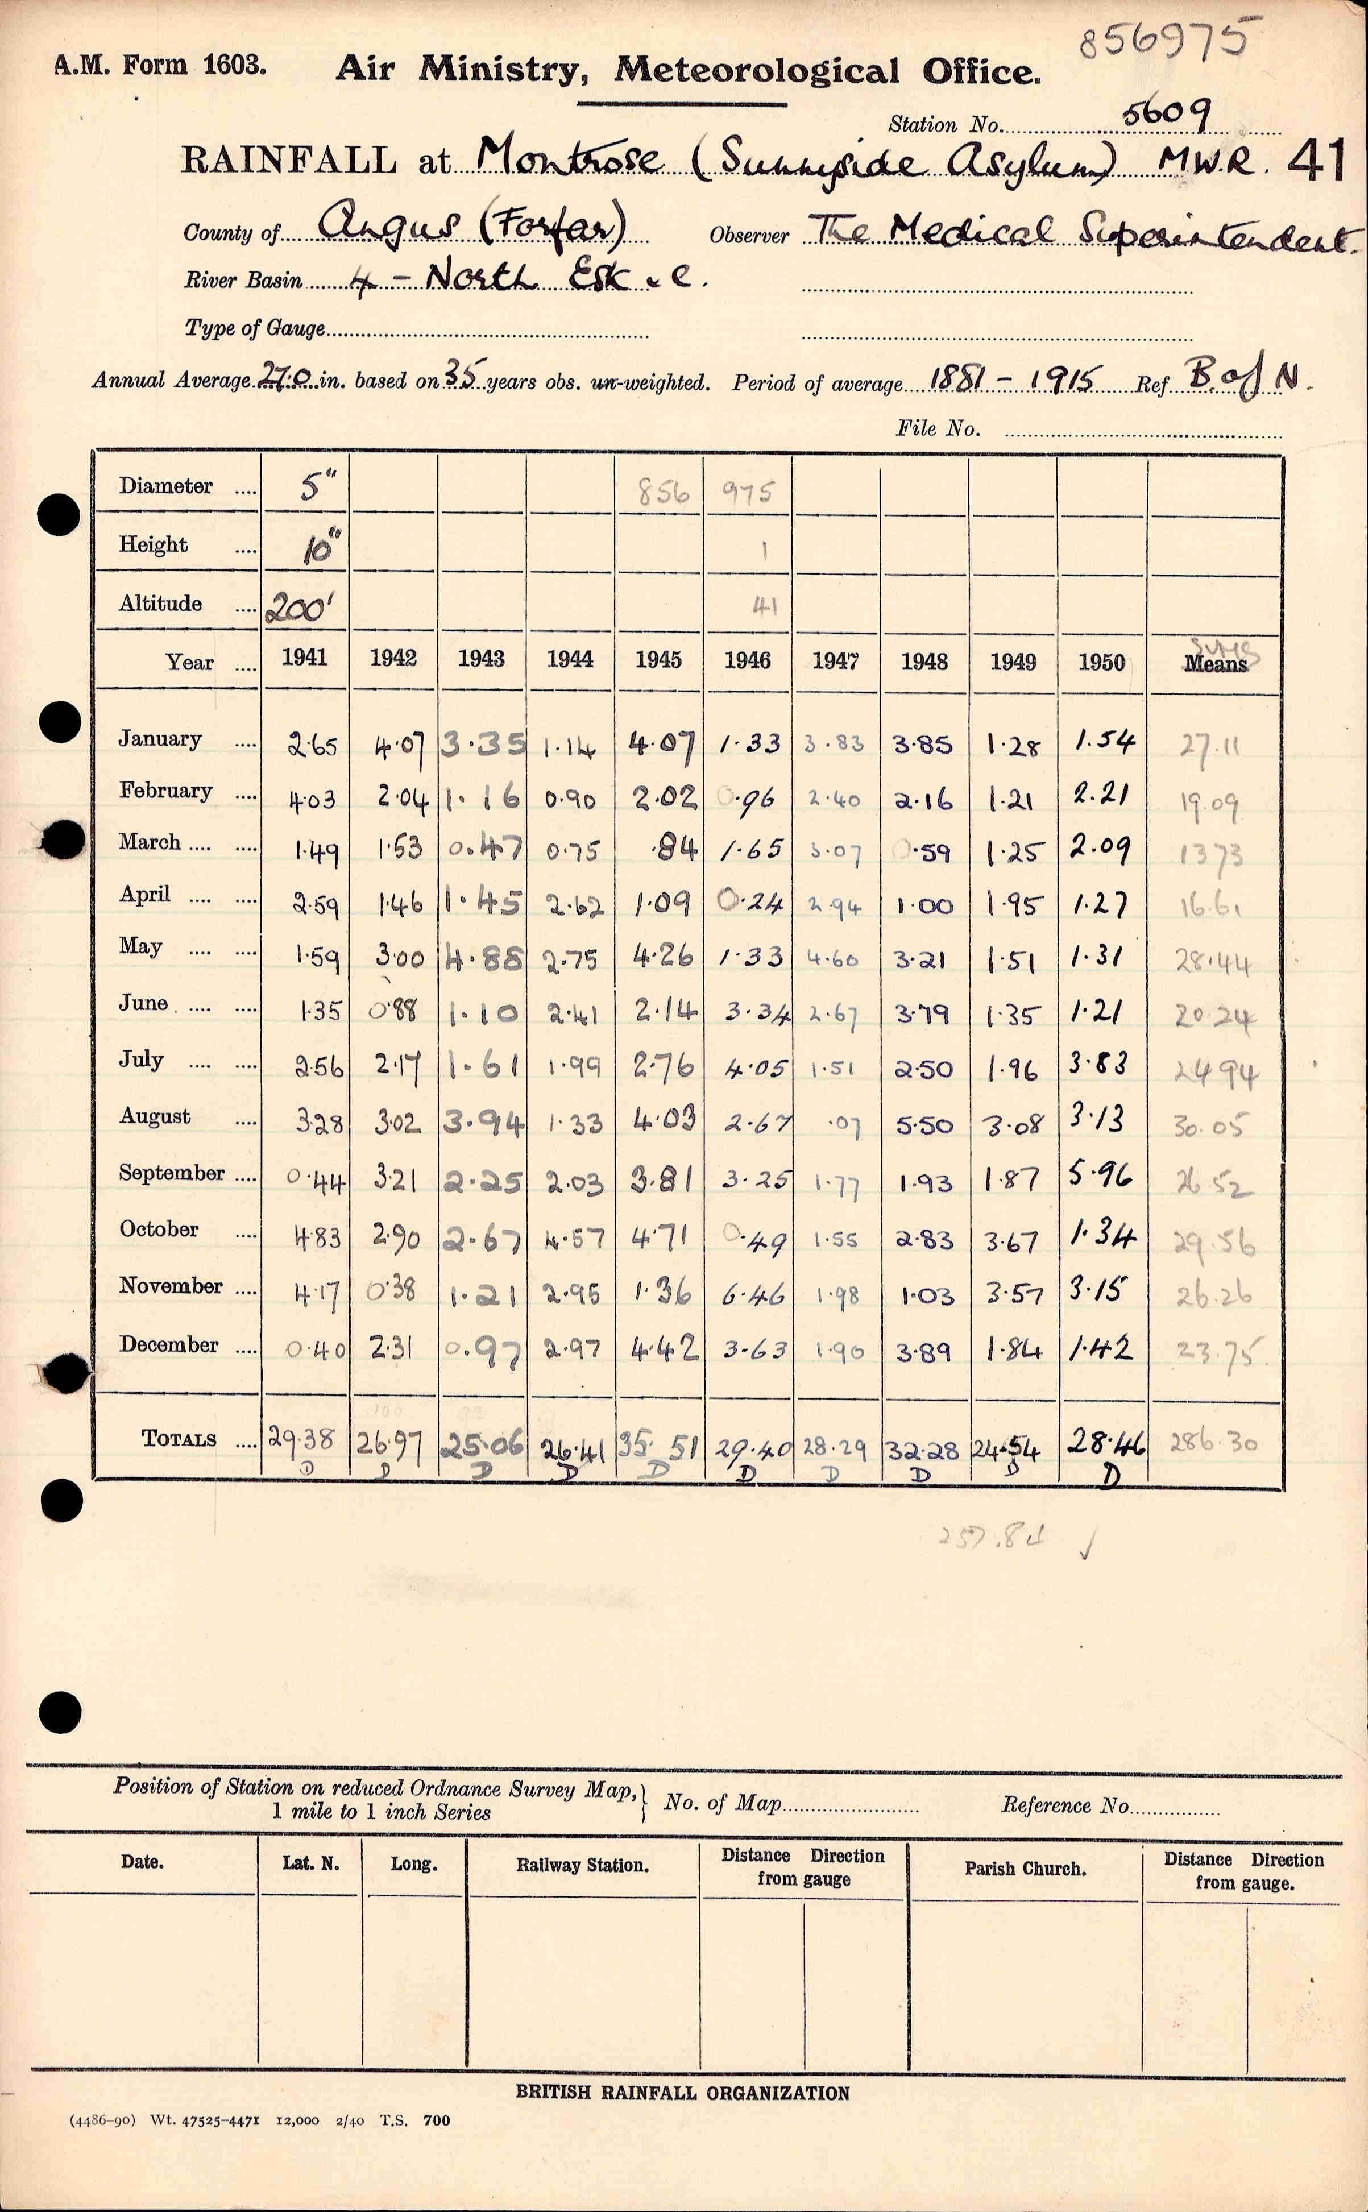 856975
A.M. Form 1603. Air Ministry, Meteorological Office.
Station No. 5609
RAINFALL at Montrose (Sunnyside Asylum) MWR. 41
County of Angus (Forfar) Observer The Medical Superintendent.
River Basin 4 - North Esk & C.
Type of Gauge
Annual Average 27.0 in. based on 35 years obs. un-weighted. Period of average 1881 - 1915 Ref B. of N.
File No.
Diameter .... 5" 856 975
Height .... 10" 1
Altitude .... 200' 41
Sums
Year .... 1941 1942 1943 1944 1945 1946 1947 1948 1949 1950 Means
January .... 2.65 4.07 3.35 1.14 4.07 1.33 3.83 3.85 1.28 1.54 27.11
February .... 4.03 2.04 1.16 0.90 2.02 0.96 2.40 2.16 1.21 2.21 19.09
March .... .... 1.49 1.53 0.47 0.75 .84 1.65 3.07 0.59 1.25 2.09 13 73
April .... .... 2.59 1.46 1.45 2.62 1.09 0.24 2.94 1.00 1.95 1.27 16.61
May .... .... 1.59 3.00 4.88 2.75 4.26 1.33 4.60 3.21 1.51 1.31 28.44
June .... .... 1.35 0.88 1.10 2.41 2.14 3.34 2.67 3.79 1.35 1.21 20.24
July .... .... 2.56 2.17 1.61 1.99 2.76 4.05 1.51 2.50 1.96 3.83 24 94
August .... 3.28 3.02 3.94 1.33 4.03 2.67 .07 5.50 3.08 3.13 30.05
September .... 0.44 3.21 2.25 2.03 3.81 3.25 1.77 1.93 1.87 5.96 26 52
October .... 4.83 2.90 2.67 4.57 4.71 0.49 1.55 2.83 3.67 1.34 29.56
November .... 4.17 0.38 1.21 2.95 1.36 6.46 1.98 1.03 3.57 3.15 26.26
December .... 0.40 2.31 0.97 2.97 4.42 3.63 1.90 3.89 1.84 1.42 23.75
TOTALS .... 29.38 26.97 25.06 26.41 35.51 29.40 28.29 32.28 24.54 28.46 286.30
D D D D D D D D D D
257.84 ✓
Position of Station on reduced Ordnance Survey Map, } No. of Map Reference No.
1 mile to 1 inch Series
Date. Lat. N. Long. Railway Station. Distance Direction from gauge Parish Church. Distance Direction from gauge.
BRITISH RAINFALL ORGANIZATION
(4486-90) Wt. 47525-4471 12,000 2/40 T.S. 700